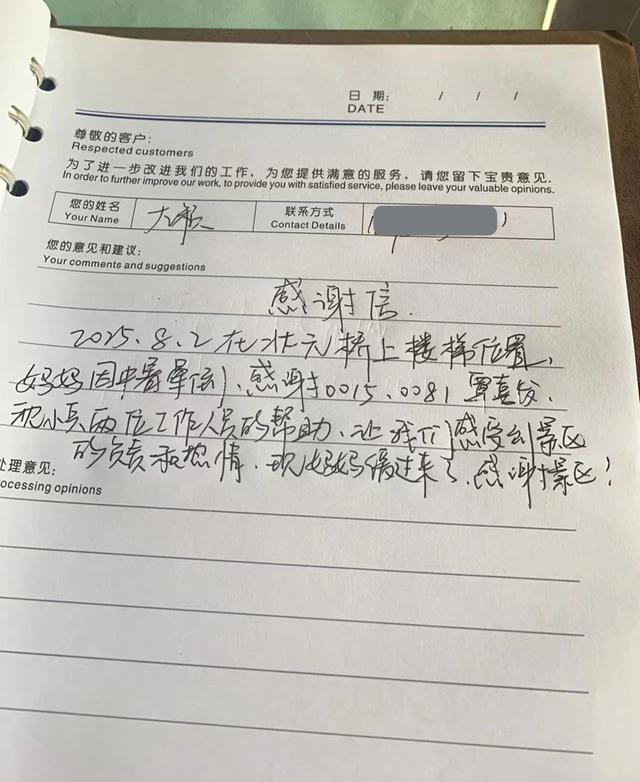 日 期: / / /
DATE
尊敬的客户:
Respected customers
为了进一步改进我们的工作，为您提供满意的服务，请您留下宝贵意见.
In order to further improve our work, to provide you with satisfied service, please leave your valuable opinions.
您的姓名 联系方式
Your Name Contact Details
您的意见和建议:
Your comments and suggestions
感谢信.
2025.8.2在状元桥上楼梯位置,
妈妈因中暑晕倒,感谢0015、0081覃喜发、
祝小兵两位工作人员的帮助、让我们感受到景区
的负责和热情.现妈妈缓过来了,感谢景区!
处理意见:
ocessing opinions